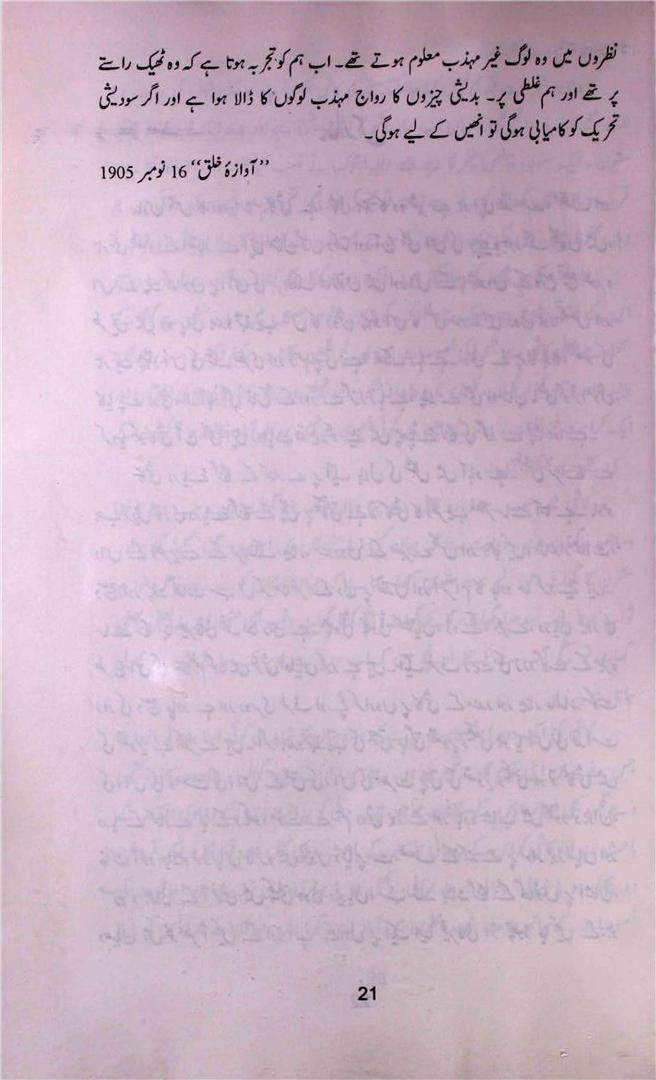 نظروں میں وہ لوگ غیر مہذب معلوم ہوتے تھے۔ اب ہم کو تجربہ ہوتا ہے کہ وہ ٹھیک راستے
پر تھے اور ہم غلطی پر۔ بدیشی چیزوں کا رواج مہذب لوگوں کا ڈالا ہوا ہے اور اگر سودیشی
تحریک کو کامیابی ہوگی تو انھیں کے لیے ہوگی۔
”آوازۂ خلق“ 16 نومبر 1905
21